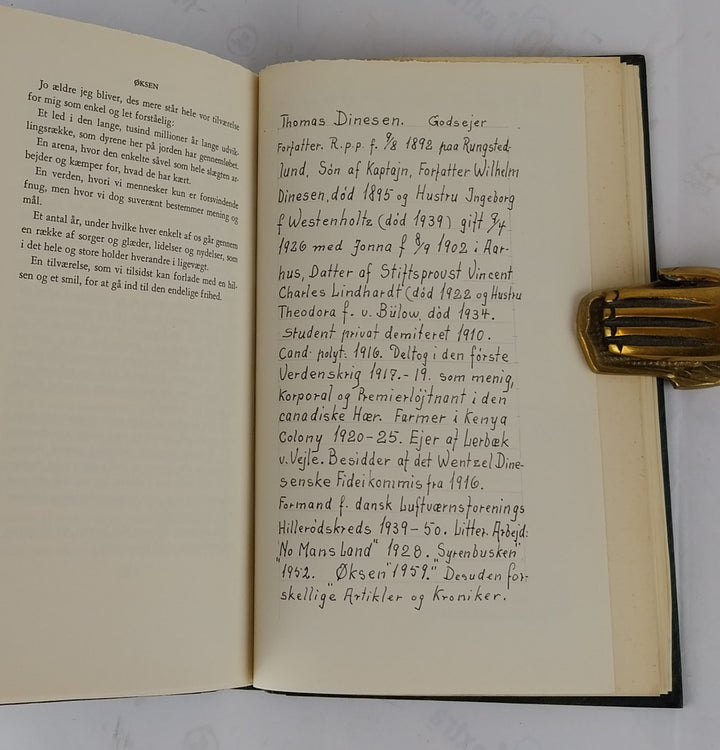 ØKSEN
Jo ældre jeg bliver, des mere står hele vor tilværelse
for mig som enkel og let forståelig:
Et led i den lange, tusind millioner år lange udvik-
lingsrække, som dyrene her på jorden har gennemløbet.
En arena, hvor den enkelte såvel som hele slægten ar-
bejder og kæmper for, hvad de har kært.
En verden, hvori vi mennesker kun er forsvindende
fnug, men hvor vi dog suverænt bestemmer mening og
mål.
Et antal år, under hvilke hver enkelt af os går gennem
en række af sorger og glæder, lidelser og nydelser, som
i det hele og store holder hverandre i ligevægt.
En tilværelse, som vi tilsidst kan forlade med en hil-
sen og et smil, for at gå ind til den endelige frihed.
Thomas Dinesen. Godsejer
Forfatter. R.p.p. f. 9/8 1892 paa Rungsted-
lund, Sön af Kaptajn, Forfatter Wilhelm
Dinesen, död 1895 og Hustru Ingeborg
f Westenholtz (död 1939) gift 9/4
1926 med Jonna f 8/9 1902 i Aar-
hus, Datter af Stiftsprovst Vincent
Charles Lindhardt (död 1922 og Hustru
Theodora f. v. Bülow, död 1934.
Student privat demiteret 1910.
Cand. polyt. 1916. Deltog i den förste
Verdenskrig 1917.-19. som menig,
Korporal og Premierlöjtnant i den
canadiske Hær. Farmer i Kenya
Colony 1920-25. Ejer af Lerbæk
v. Vejle. Besidder af det Wentzel Dine-
senske Fideikommis fra 1916.
Formand f. dansk Luftværnsforenings
Hilleródskreds 1939-50. Litter. Arbejd:
"No Mans Land" 1928. Syrenbusken"
"1952. "Øksen" 1959." Desuden for-
skellige Artikler og Kroniker.